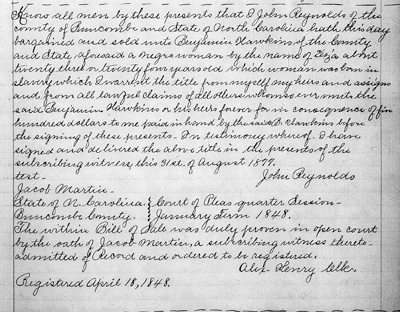 Know all men by these presents that I John Reynolds of the
county of Buncombe and State of North Carolina hath this day
bargained and sold unto Benjamin Hawkins of the County
and State aforesaid a negro woman by the name of Eliza about
twenty three or twenty four years old which woman was born in
slavery which I warrant the title from myself my heirs and assigns
and from all lawful claims of all others whomsoever unto the
said Benjamin Hawkins or his heirs forever for in consequence of five
hundred dollars to me paid in hand by the said B. Hawkins before
the signing of these presents. In testimony whereof I have
signed and delivered the above title in the presents of the
subscribing witness, this 31st. of August 1877.
test- John Reynolds
Jacob Martin.
State of N. Carolina. { Court of Pleas quarter Session-
Buncombe County. { January Term 1848.
The within Bill of Sale was duly proven in open court
by the oath of Jacob Martin, a subscribing witness thereto-
admitted of Record and ordered to be registered.
Henry Clk.
Registered April 18, 1848.